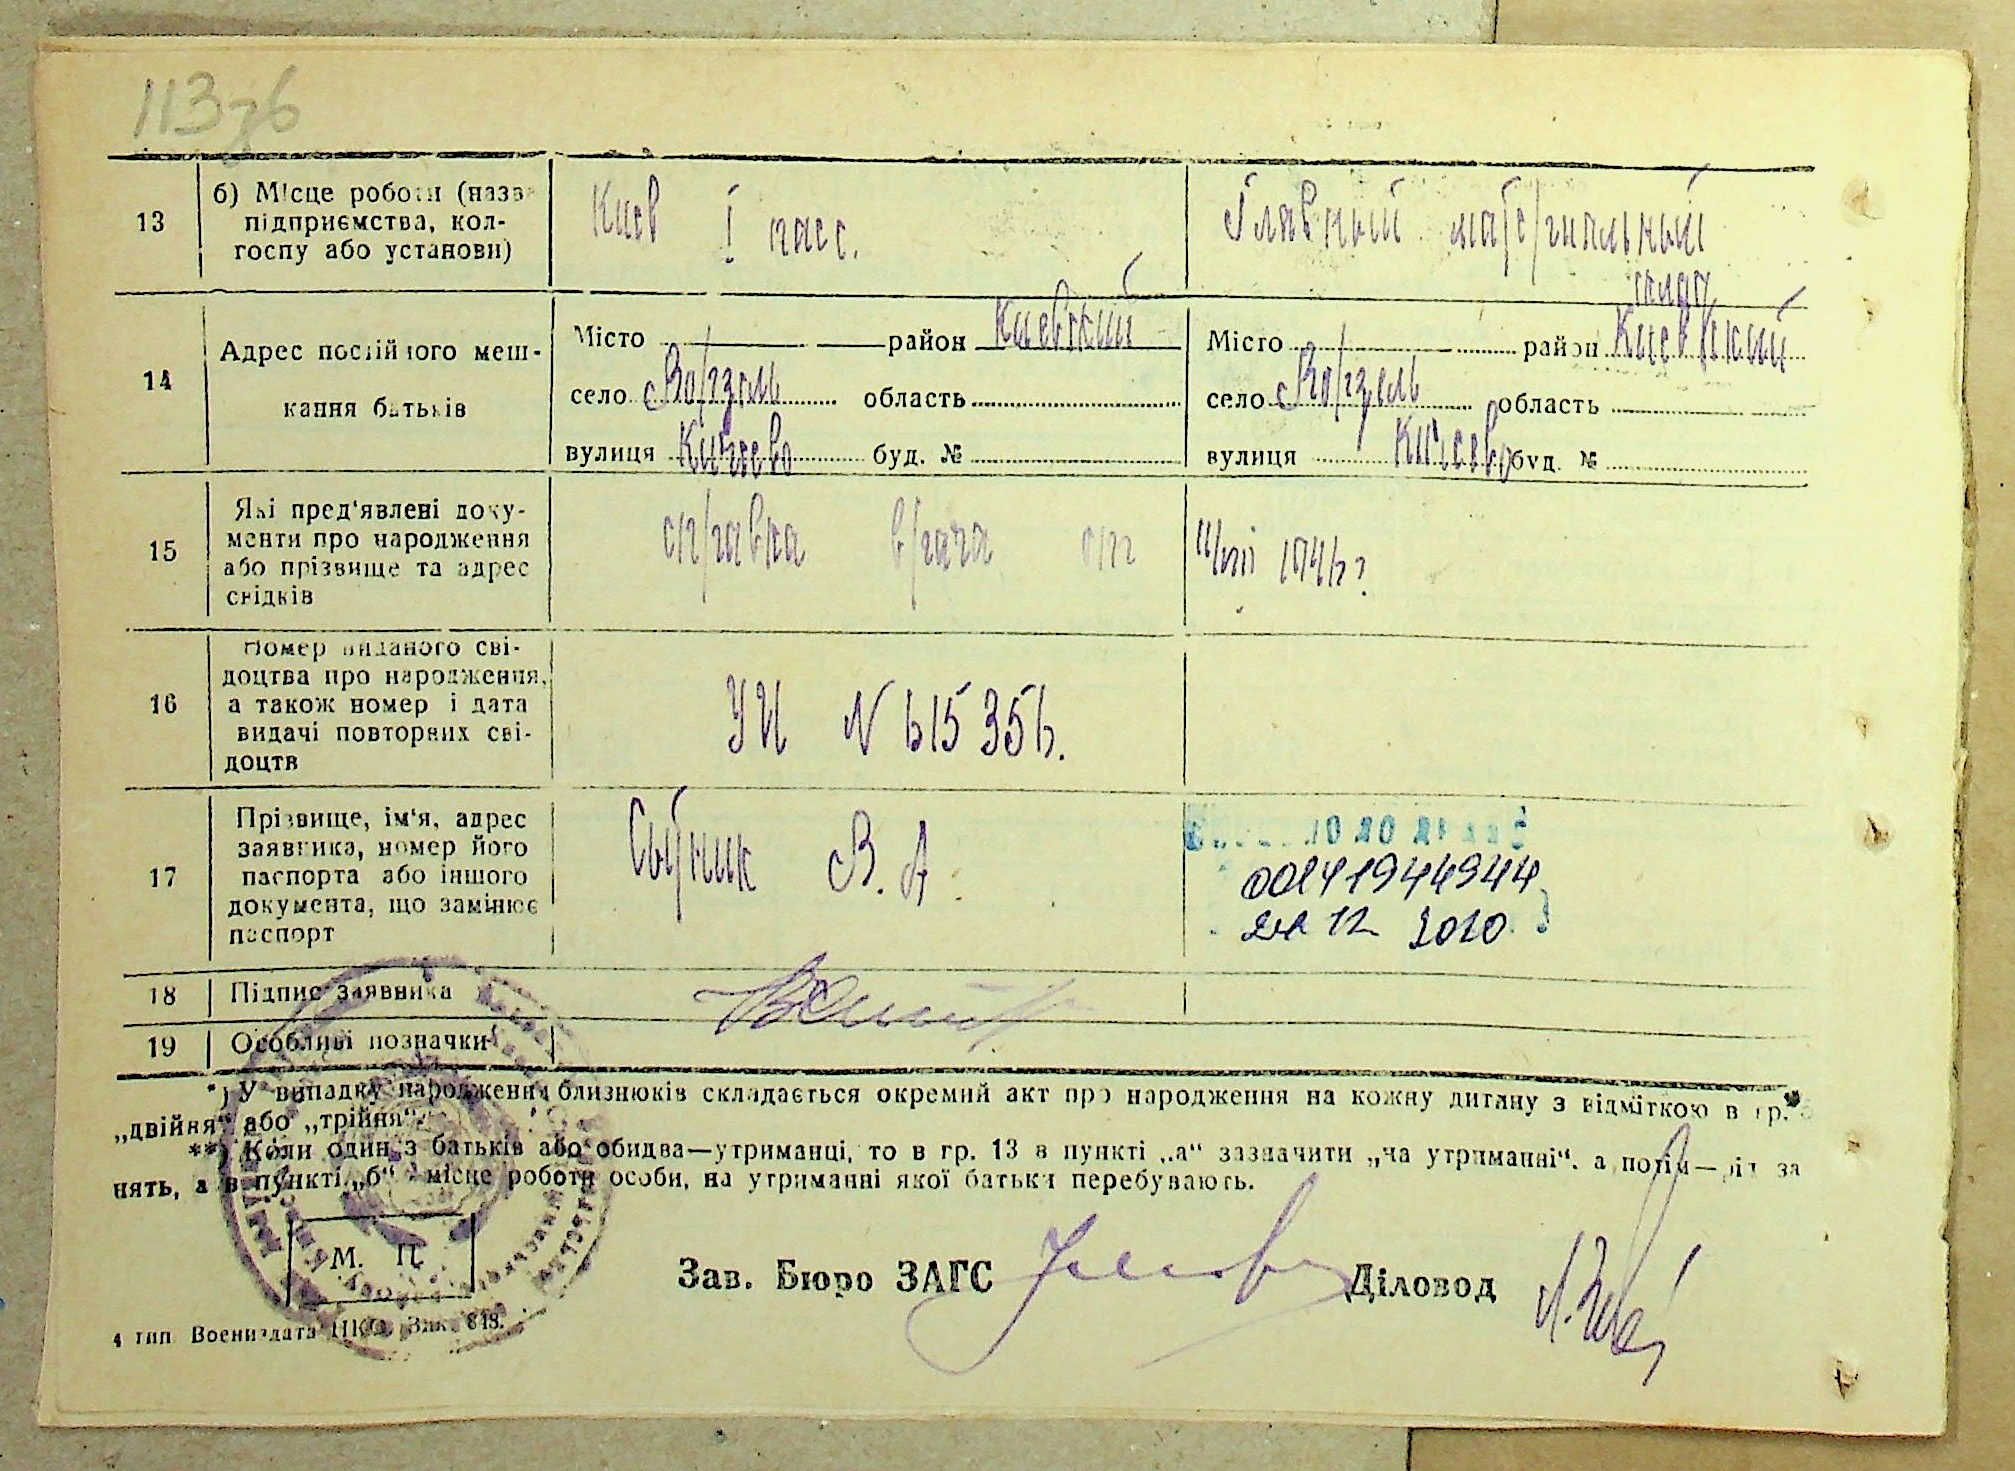 113зв
13
б) Місце роботи (назва
підприємства, кол-
госпу або установи)
Киев I пасс.
Главный материальный
склад
14
Адрес постійного меш-
кання батьків
Місто район Киевский
село Ворзель область
вулиця Кичеево буд. №
Місто район Киевский
село Ворзель область
вулиця Кичеево буд. №
15
Які пред'явлені доку-
менти про народження
або прізвище та адрес
свідків
справка врача от
1946 г
16
Номер виданого сві-
доцтва про народження,
а також номер і дата
видачі повторних сві-
доцтв
УИ N 615356.
17
Прізвище, ім'я, адрес
заявника, номер його
паспорта або іншого
документа, що замінює
паспорт
Сытник В. А.
00141944944
12 2010
18
Підпис заявника
19
Особливі позначки
*) У випадку народження близнюків складається окремий акт про народження на кожну дитину з відміткою в гр.
„двійня“ або „трійня“.
**) Коли один з батьків або обидва—утриманці, то в гр. 13 в пункті „а“ зазначити „на утриманні“, а потім— за
нять, а в пункті „б“ місце роботи особи, на утриманні якої батьки перебувають.
М. П.
Зав. Бюро ЗАГС
Діловод
4 тип Воениздата НКО. Зак. 848.